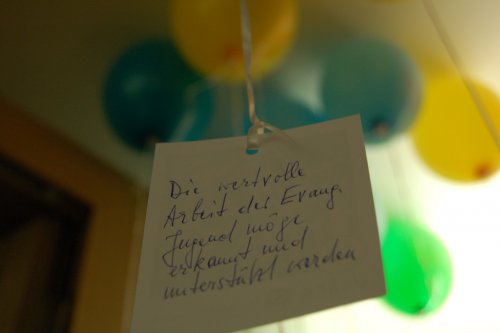 Die wertvolle
Arbeit der Evang.
Jugend möge
erkannt und
unterstützt werden